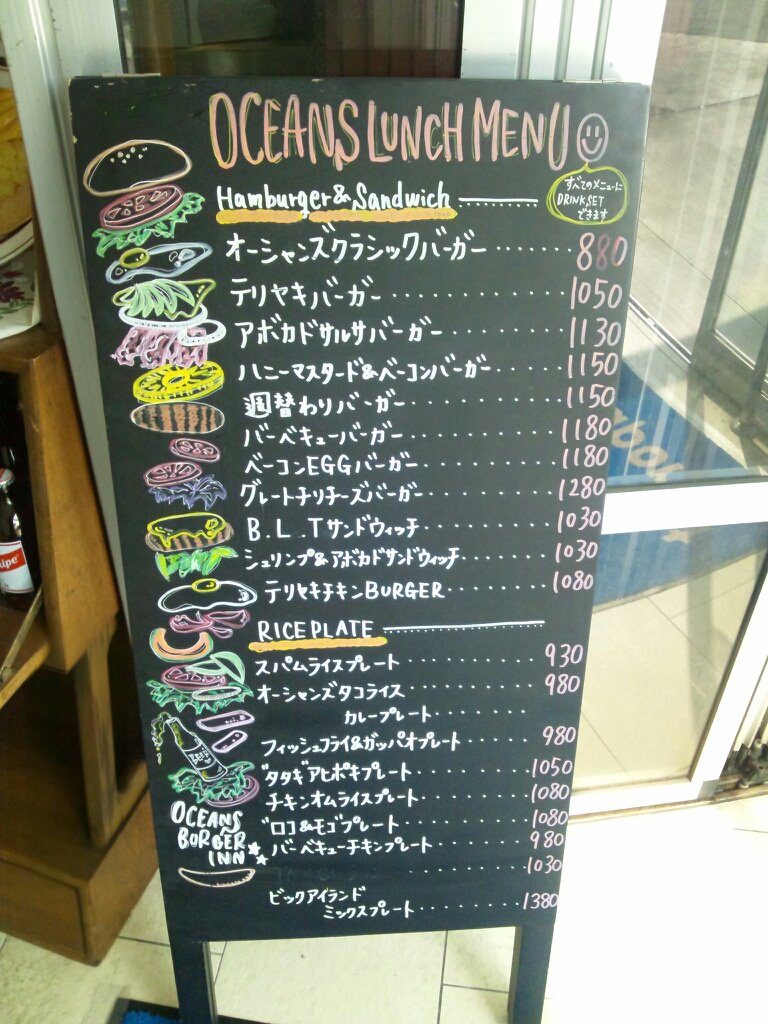 OCEANS LUNCH MENU
Hamburger & Sandwich
すべてのメニューに
DRINK SET
できます
オーシャンズクラシックバーガー ・・・・・・ 880
テリヤキバーガー ・・・・・・・・・・・・ 1050
アボカドサルサバーガー ・・・・・・・・ 1130
ハニーマスタード&ベーコンバーガー ・・・・・・ 1150
週替わりバーガー ・・・・・・・・・・・ 1150
バーベキューバーガー ・・・・・・・・・・ 1180
ベーコンEGGバーガー ・・・・・・・・・ 1180
グレートチリチーズバーガー ・・・・・・・・ 1280
B.L.Tサンドウィッチ ・・・・・・・・ 1030
シュリンプ&アボカドサンドウィッチ ・・・・・・ 1030
テリヤキチキンBURGER ・・・・・・・ 1080
RICE PLATE
スパムライスプレート ・・・・・・・・ 930
オーシャンズタコライス ・・・・・・・・ 980
カレープレート ・・・・・・・
フィッシュフライ&ガッパオプレート ・・・・・ 980
"タタギ"アヒポキプレート ・・・・・・・ 1050
チキンオムライスプレート ・・・・・・・ 1080
"ロコ&モゴ"プレート ・・・・・・・・ 1080
バーベキューチキンプレート ・・・・・・ 980
1030
ビックアイランド
ミックスプレート ・・・・・・・ 1380
OCEANS
BURGER
INN
BEER